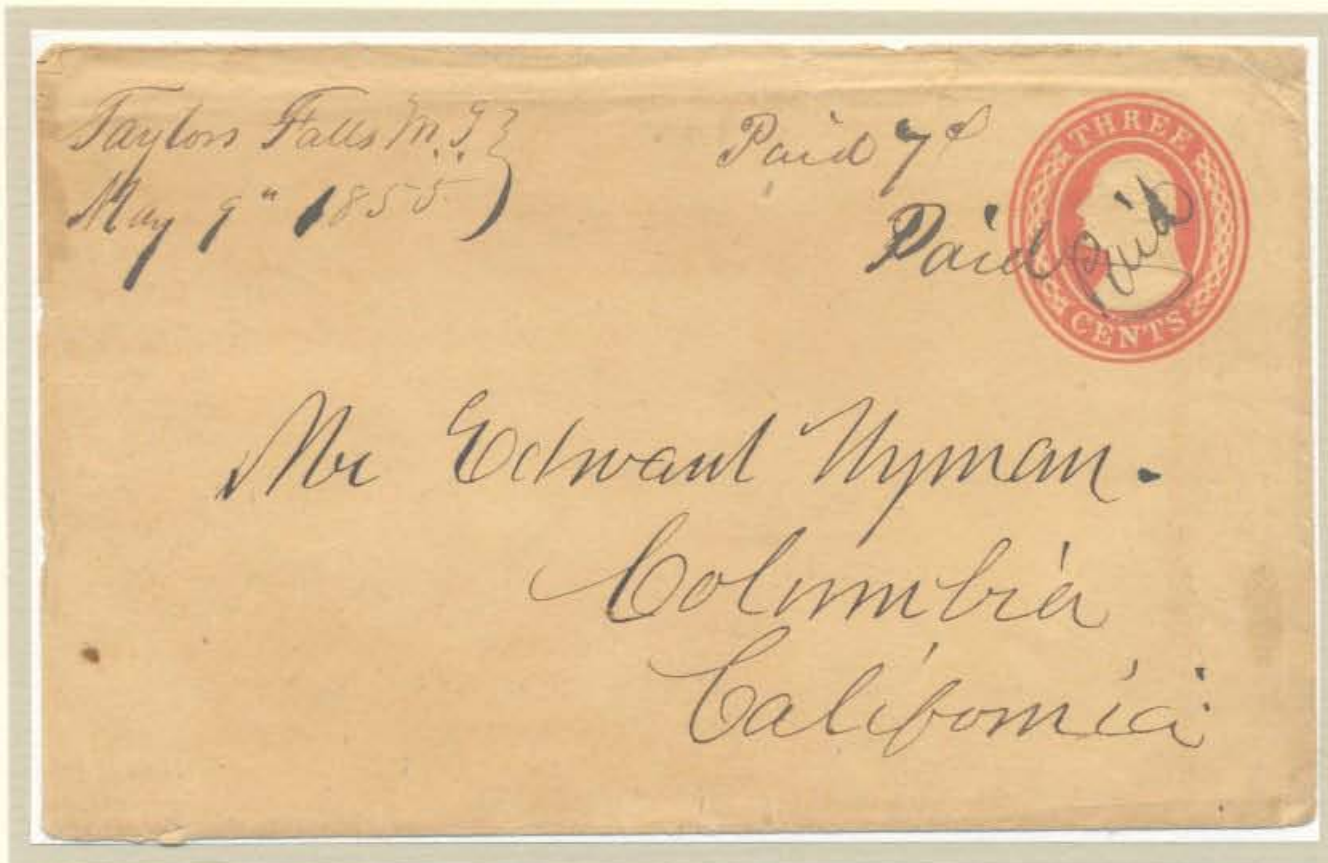 Taylors Falls M.T.
May 9" 1855
Paid 7c
Paid
Paid
THREE
CENTS
Mr Edward Wyman.
Columbia
California